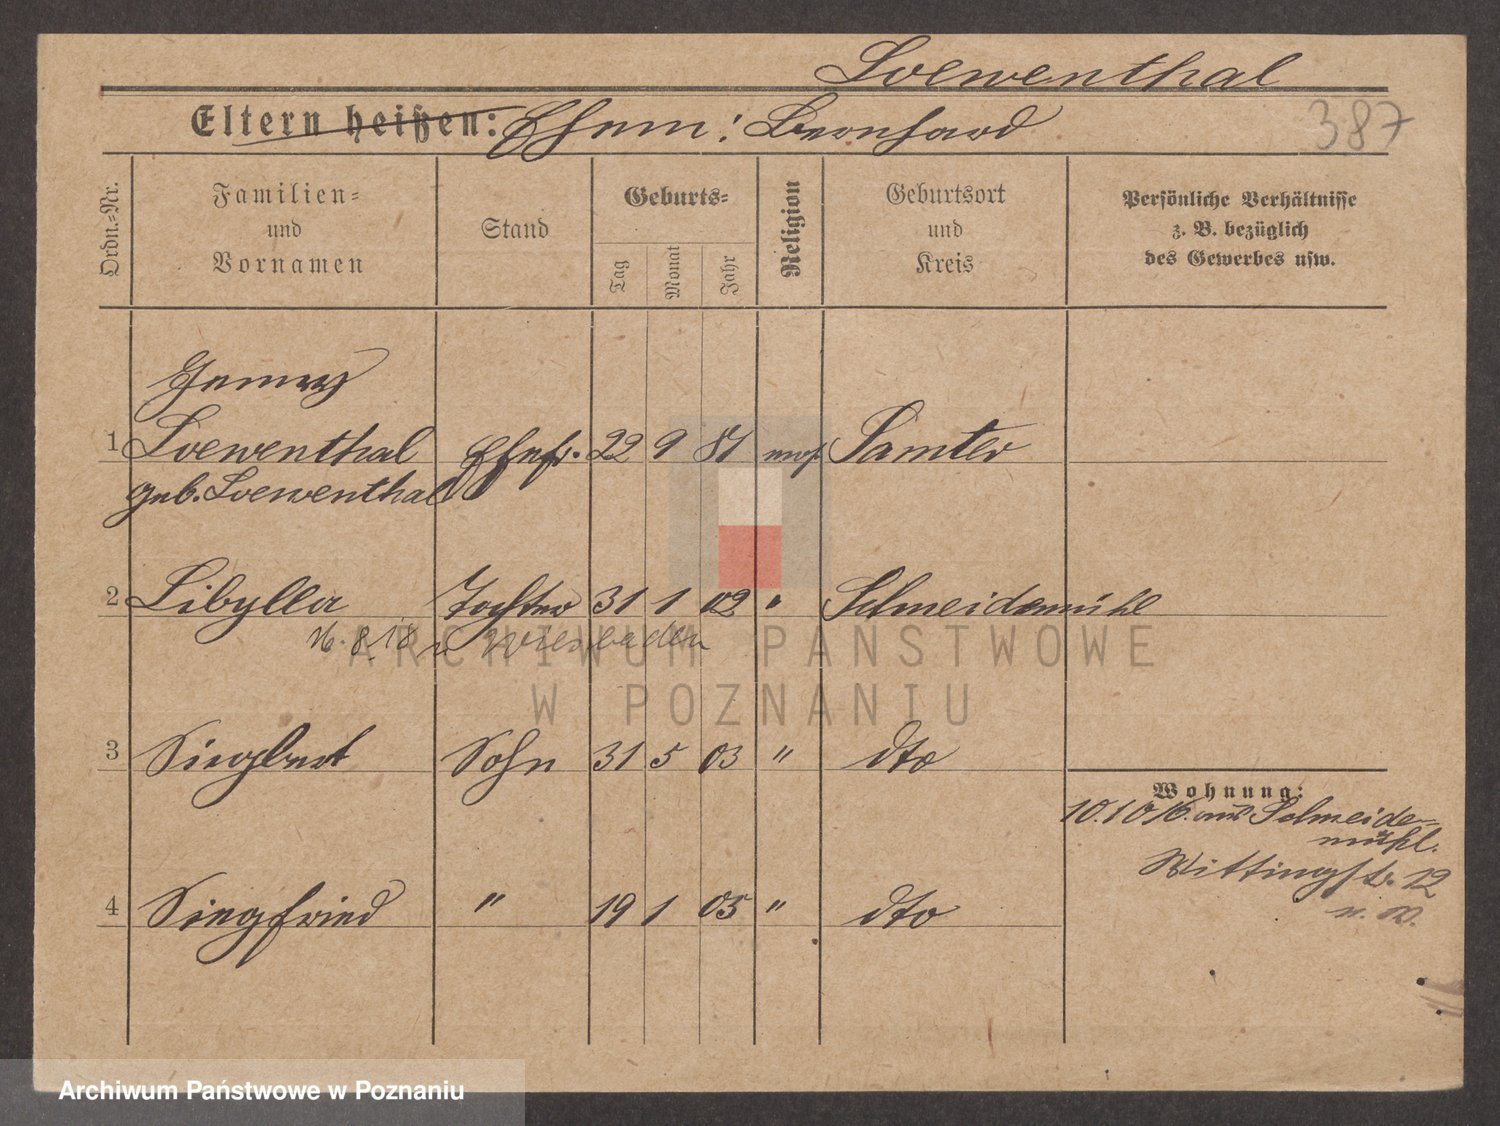 Loewenthal
Eltern heißen: Ehem: Bernhard
387
Ordn.=Nr.
Familien=
und
Vornamen
Stand
Geburts=
Tag
Monat
Jahr
Religion
Geburtsort
und
Kreis
Persönliche Verhältnisse
z. B. bezüglich
des Gewerbes usw.
Jenny
1 Loewenthal Ehefr. 22 9 81 mos. Samter
geb. Loewenthal
2 Sibylla Tochter 31 1 02 " Schneidemühl
16.8.18 n Wiesbaden
3 Siegbert Sohn 31 5 03 " dto
Wohnung:
10.10 16. aus Schneide=
mühl.
Wittingstr. 12
4 Siegfried " 19 1 05 " dto
ARCHIWUM PAŃSTWOWE
W POZNANIU
Archiwum Państwowe w Poznaniu